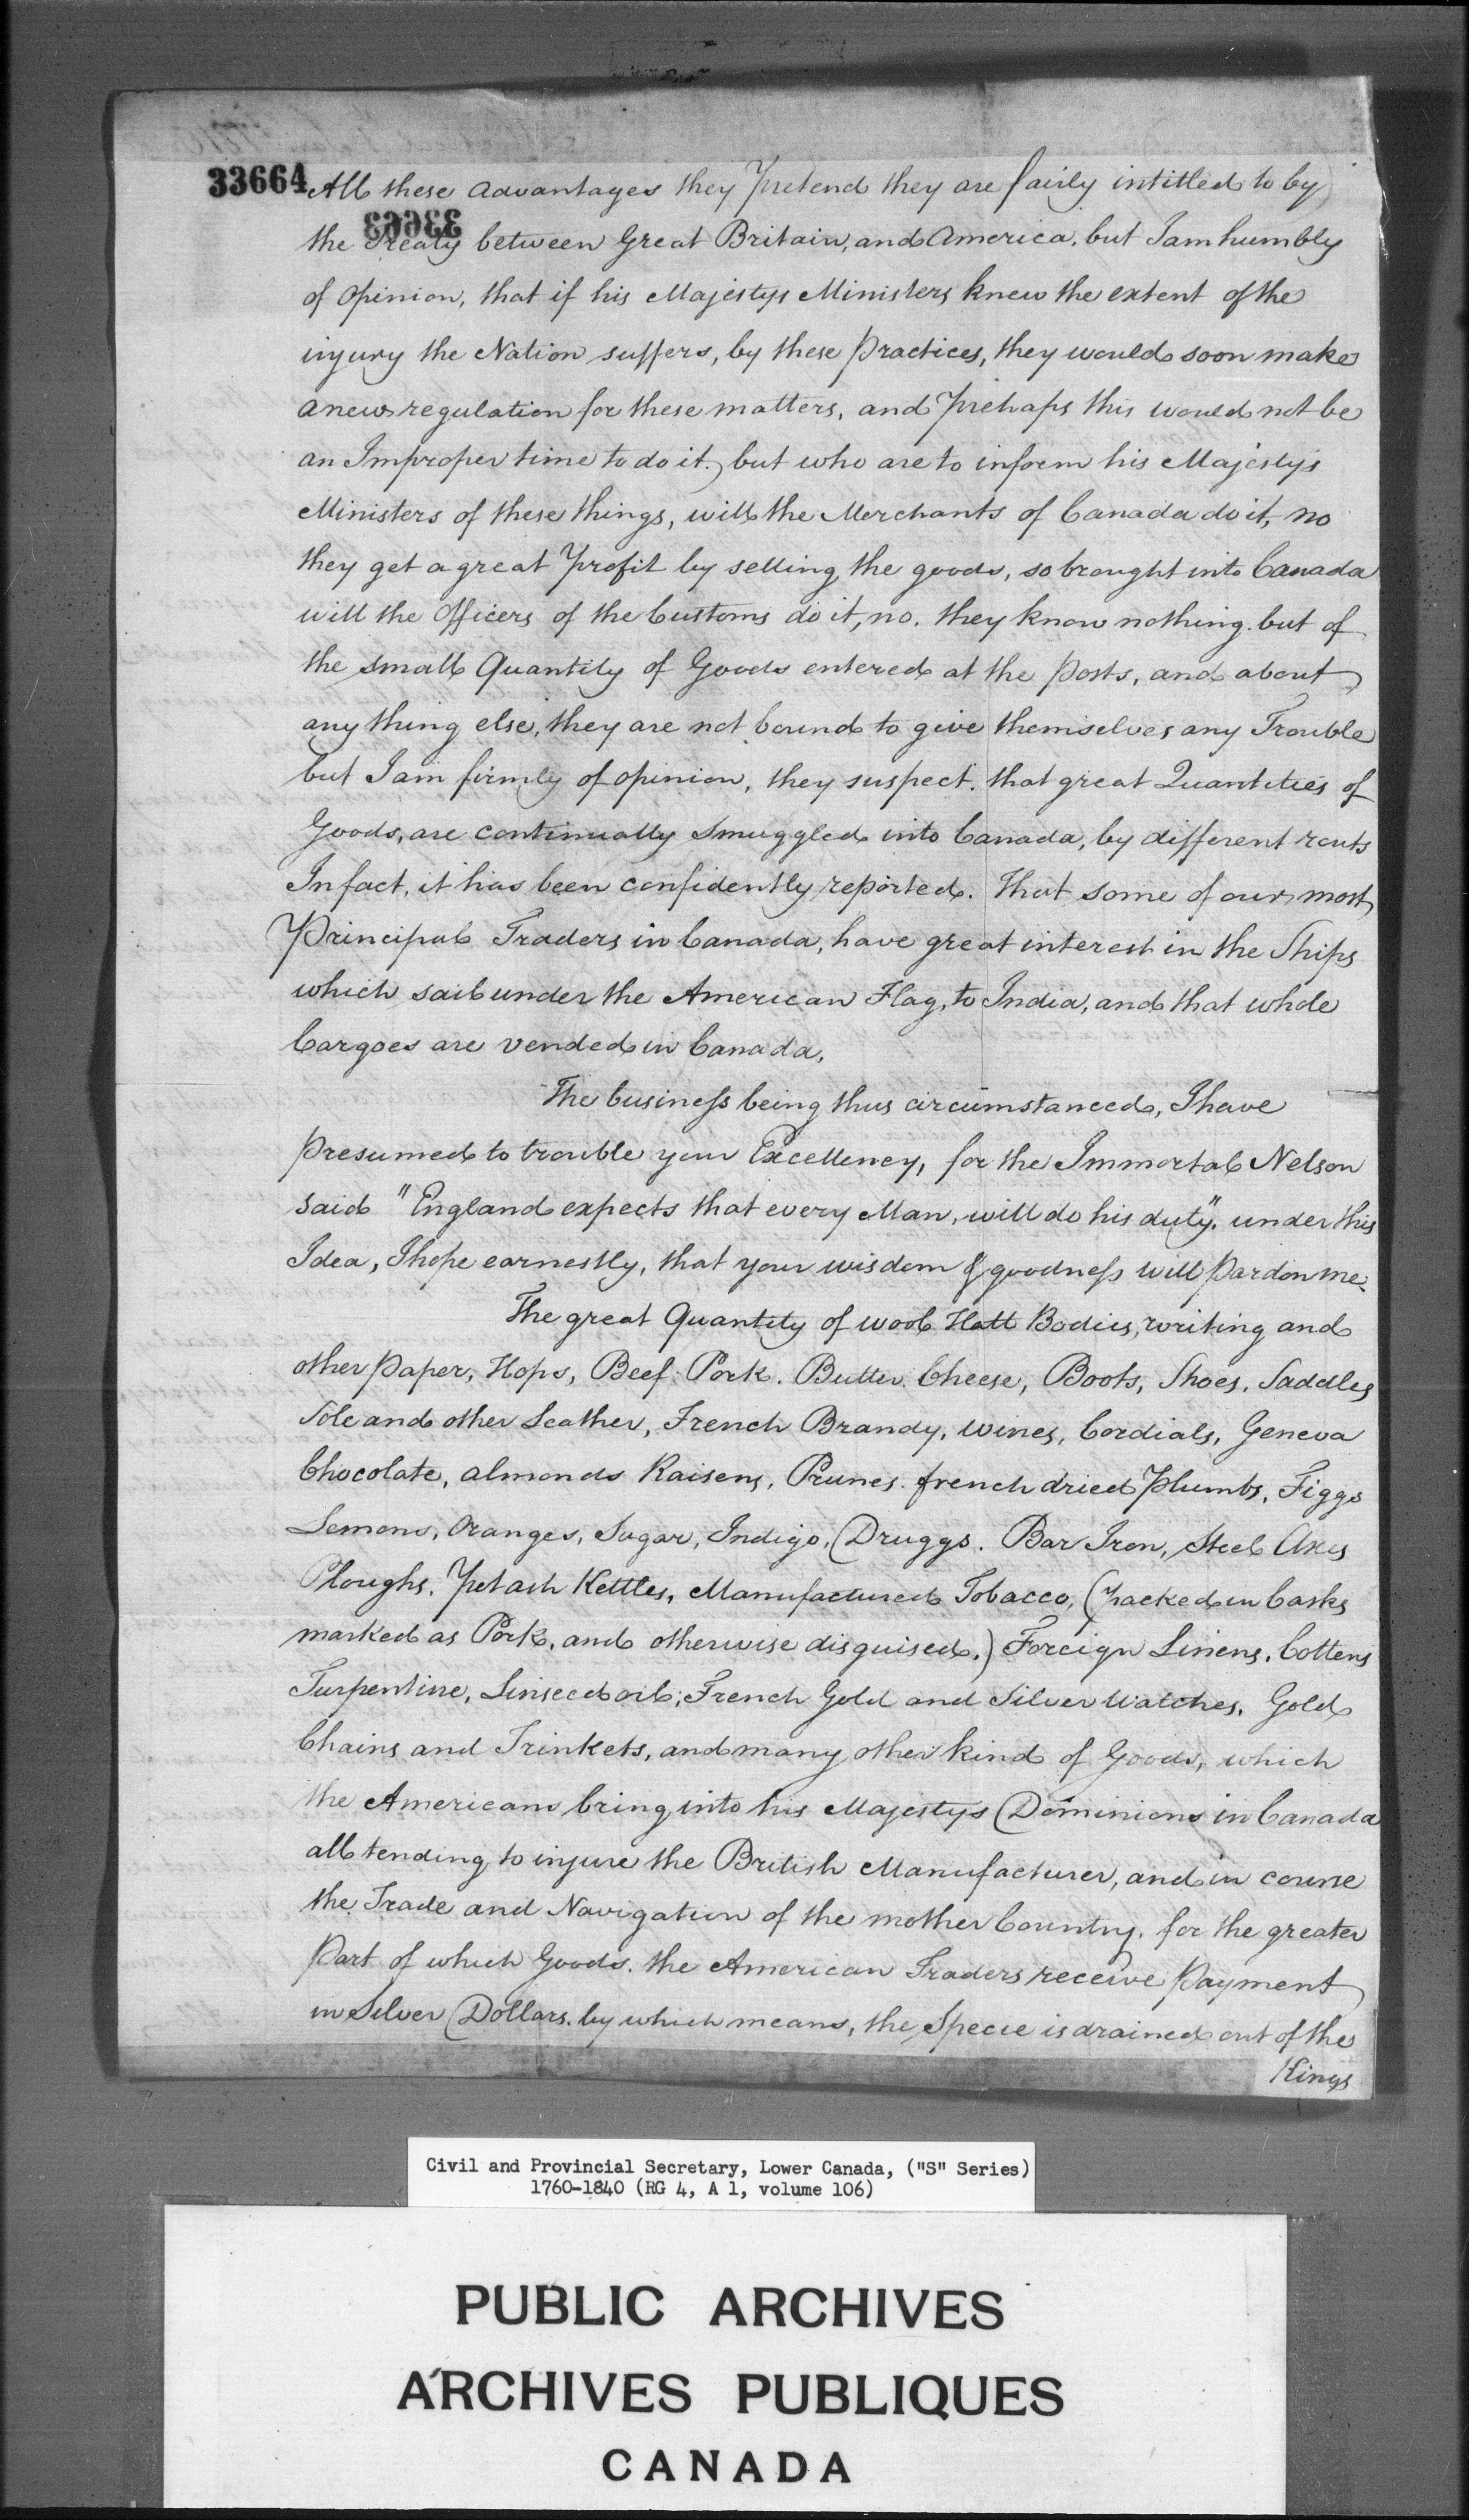 33664 All these advantages they Pretend they are fairly intitled to by
33663
the Treaty between Great Britain, and America, but I am humbly
of opinion, that if his Majestys Ministers knew the extent of the
injury the Nation suffers, by these Practices, they would soon make
a new regulation for these matters, and Prehaps this would not be
an Improper time to do it. but who are to inform his Majesty's
Ministers of these things, will the Merchants of Canada do it, no
they get a great Profit by selling the goods, so brought into Canada
will the Officers of the Customs do it, no. they know nothing but of
the small Quantity of Goods entered at the Posts, and about
any thing else, they are not bound to give themselves any Trouble
but I am firmly of opinion, they suspect. that great Quantities of
Goods, are continually smuggled into Canada, by different routs
In fact, it has been confidently reported. that some of our most
Principal Traders in Canada, have great interest in the Ships
which sail under the American Flag, to India, and that whole
Cargoes are vended in Canada,
The business being thus circumstanced, I have
Presumed to trouble your Excellency, for the Immortal Nelson
said "England expects that every Man, will do his duty". under this
Idea, I hope earnestly, that your wisdom & goodness will Pardon me.
The great Quantity of wool Hatt Bodies, writing and
other Paper, Hops, Beef. Pork. Butter. Cheese, Boots, Shoes, Saddles
Sole and other Leather, French Brandy, Wines, Cordials, Geneva
Chocolate, almonds Raisens, Prunes. french dried Plumbs, Figgs
Lemons, Oranges, Sugar, Indigo, Druggs. Bar Iron, Steel Axes
Ploughs. Potash Kettles, Manufactured Tobacco, (Packed in Casks
marked as Pork, and otherwise disguised.) Foreign Linens, Cottens
Turpentine, Linseed oil; French Gold and Silver Watches, Gold
Chains and Trinkets, and many other kind of Goods, which
the Americans bring into his Majestys Dominions in Canada
all tending to injure the British Manufacturer, and in course
the Trade and Navigation of the mother Country, for the greater
Part of which Goods. the American Traders receive Payment
in Silver Dollars. by which means, the Specie is drained out of the
Kings
Civil and Provincial Secretary, Lower Canada, ("S" Series)
1760-1840 (RG 4, A 1, volume 106)
PUBLIC ARCHIVES
ARCHIVES PUBLIQUES
CANADA